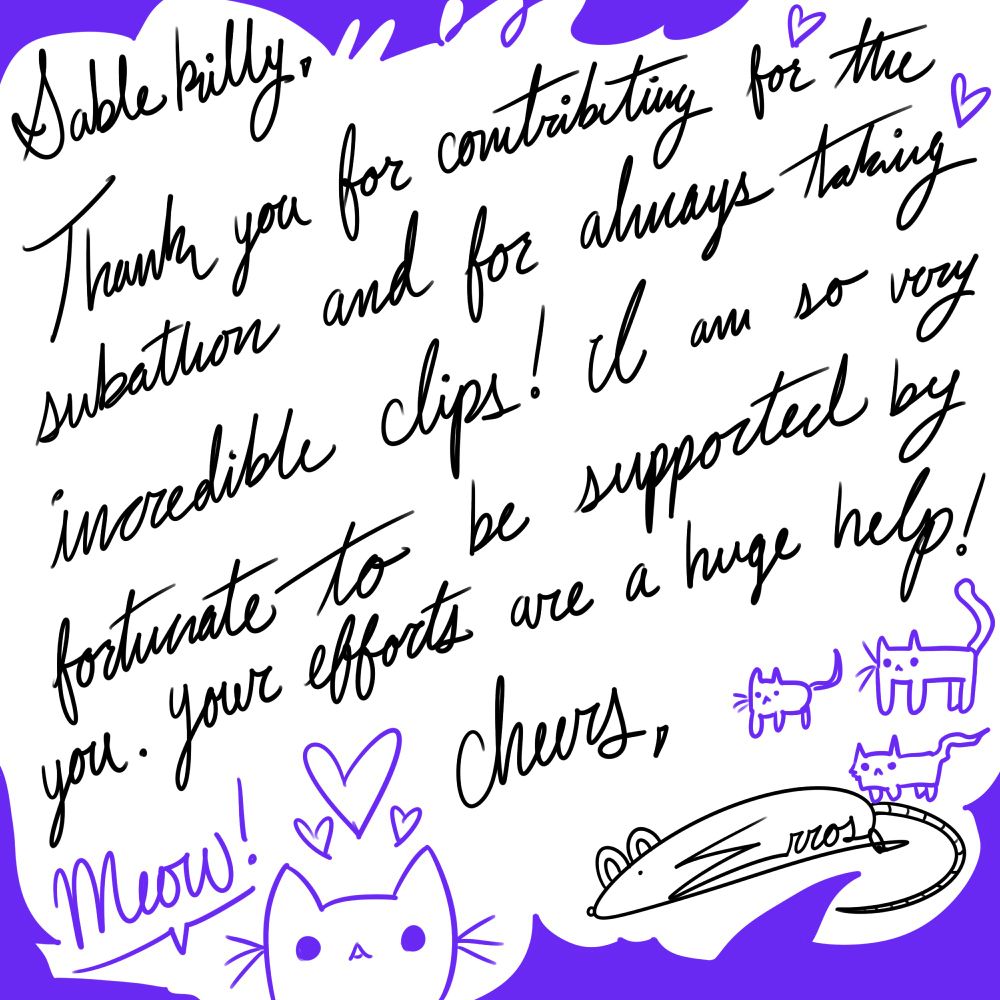 Sablekilly,
Thank you for contributing for the
subathon and for always taking
incredible clips! I am so very
fortunate to be supported by
you. your efforts are a huge help!
cheers,
Meow!
Zrros